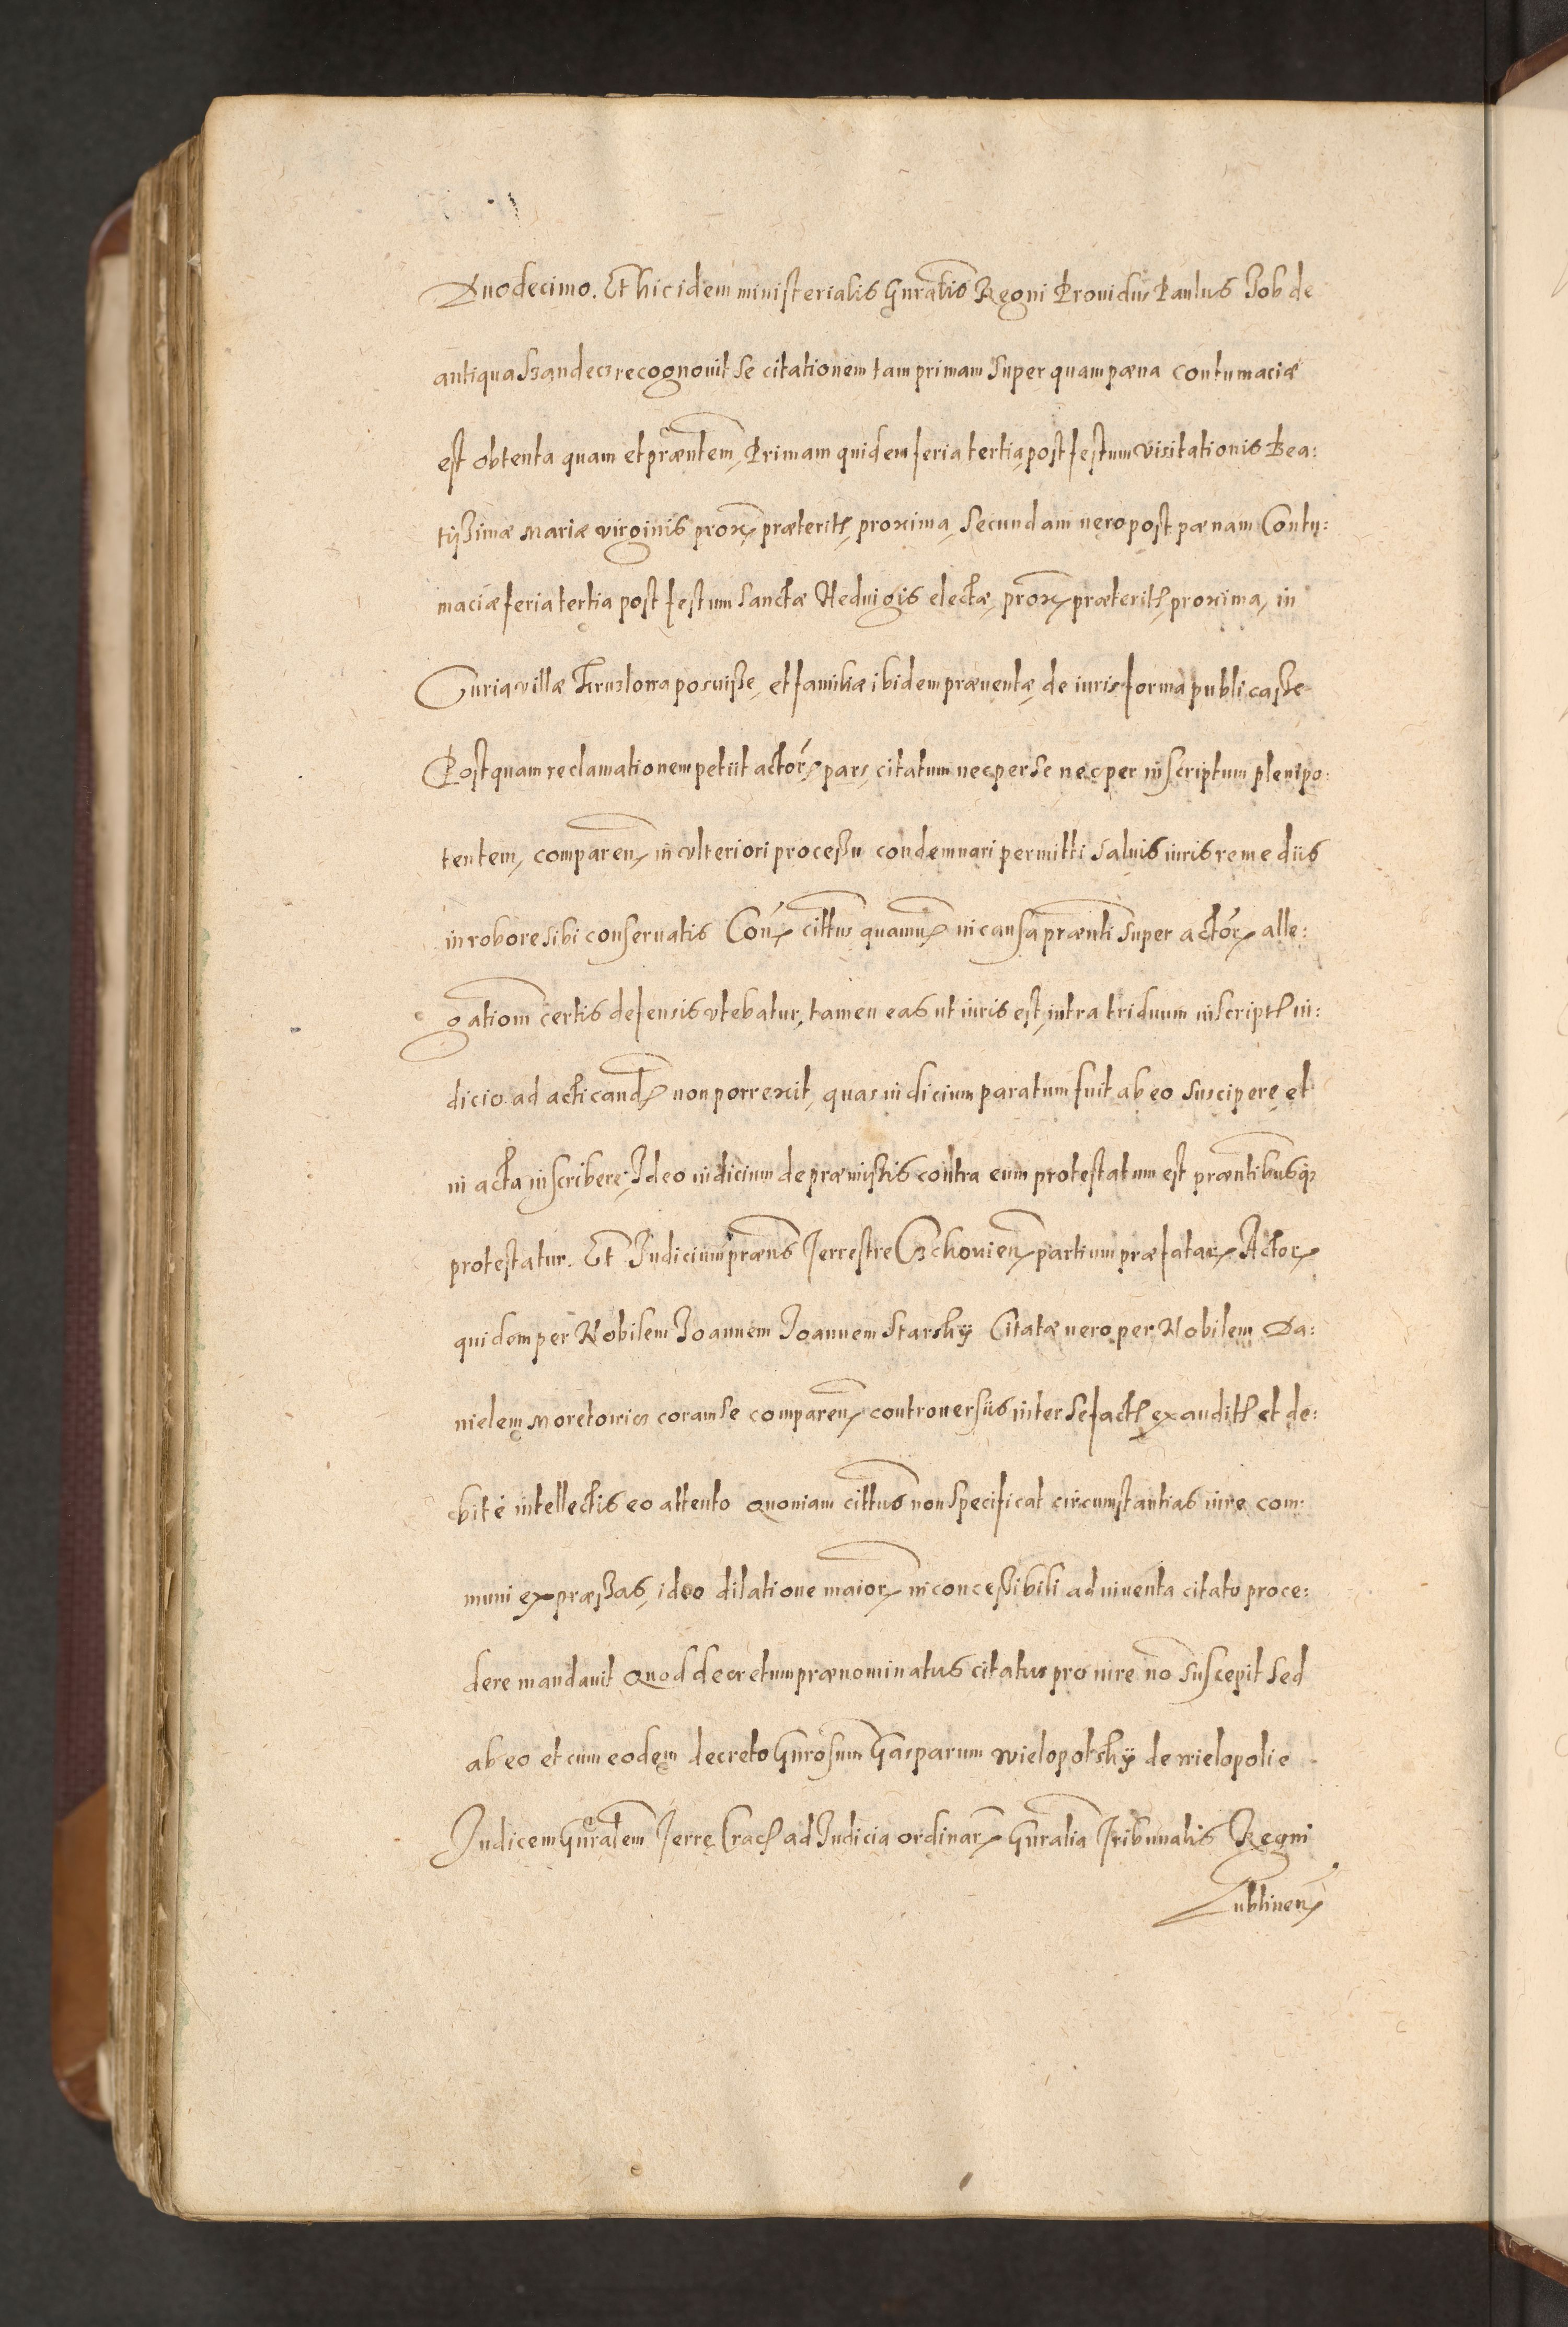 Duodecimo. Et hic idem ministerialis Gnralis Regni Prouidus Paulus Sob de
antiqua Szandecz recognouit se citationem tam primam super quam pæna contumaciæ
est obtenta quam et præntem, Primam quidem feria tertia post festum visitationis Bea:
tissimæ Mariæ virginis prox præterit proxima, Secundam uero post pænam Contu:
maciæ feria tertia post festum Sanctæ Heduigis electæ, prox præterit proxima, in
Curia villæ Kruzlowa posuisse, et familiæ ibidem præuentæ de iuris forma publicasse
Post quam reclamationem petiit actor pars, citatum nec per se nec per inscriptum plenipo:
tentem, comparen in vlteriori processu condemnari permitti saluis iuris remediis
in robore sibi conseruatis Con cittus quamuis in causa prænti super actor alle:
gationem certis defensis vtebatur, tamen eas ut iuris est, intra triduum inscript iu:
dicio ad acticand non porrexit, quas iudicium paratum fuit ab eo suscipere et
in acta inscribere, Ideo iudicium de præmissis contra eum protestatum est præntibusq
protestatur. Et Iudicium præns Terrestre Czchouien partium præfatar Actor
quidem per Nobilem Joannem Joannem Starsky Citatæ uero per Nobilem Da:
nielem Moretowicz coram se comparen controuersiis inter se fact exaudit et de:
bité intellectis eo attento quoniam cittus non specificat circumstantias iure com:
muni expræssas, ideo dilatione maior inconcessibili adinuenta citato proce:
dere mandauit Quod decretum prænominatus citatus pro iure no suscepit sed
ab eo et cum eodem decreto Gnrosum Gasparum Wielopolsky de Wielopolie
Iudicem Gnralem Terre Crac ad Iudicia ordinar Gnralia Tribunalis Regni
Lublinen